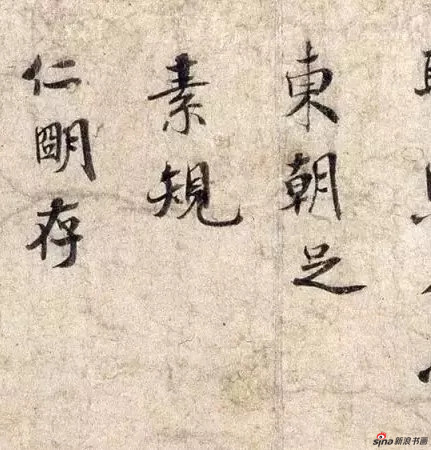 東朝足
素規
仁明存
sina新浪书画